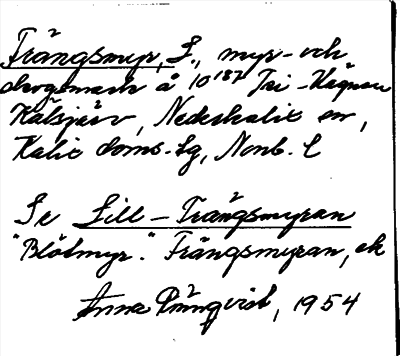 Trångsmyr, L., myr- och
skogsmark å 10¹⁸⁷ Tri-Vägnen
Kälsjärv, Nederkalix sn,
Kalix doms. Lg, Norrb. l
Se Lill-Trångsmyran
"Blötmyr." Trångsmyran, ek
Anna Rönqvist, 1954